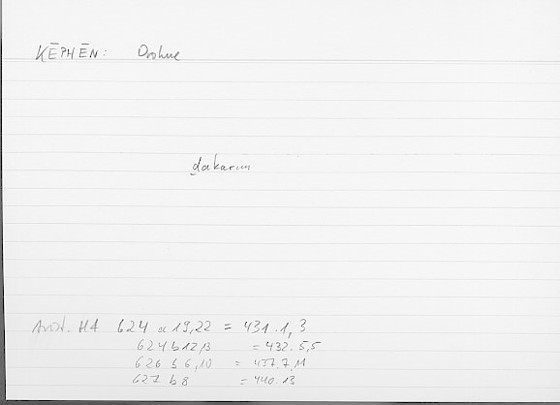 KĒPHĒN: Drohne
ḏakarun
Arist. HA 624 a 19,22 = 431.1,3
624 b 12,13 = 432.5,5
626 b 6,10 = 437.7,11
627 b 8 = 440.13